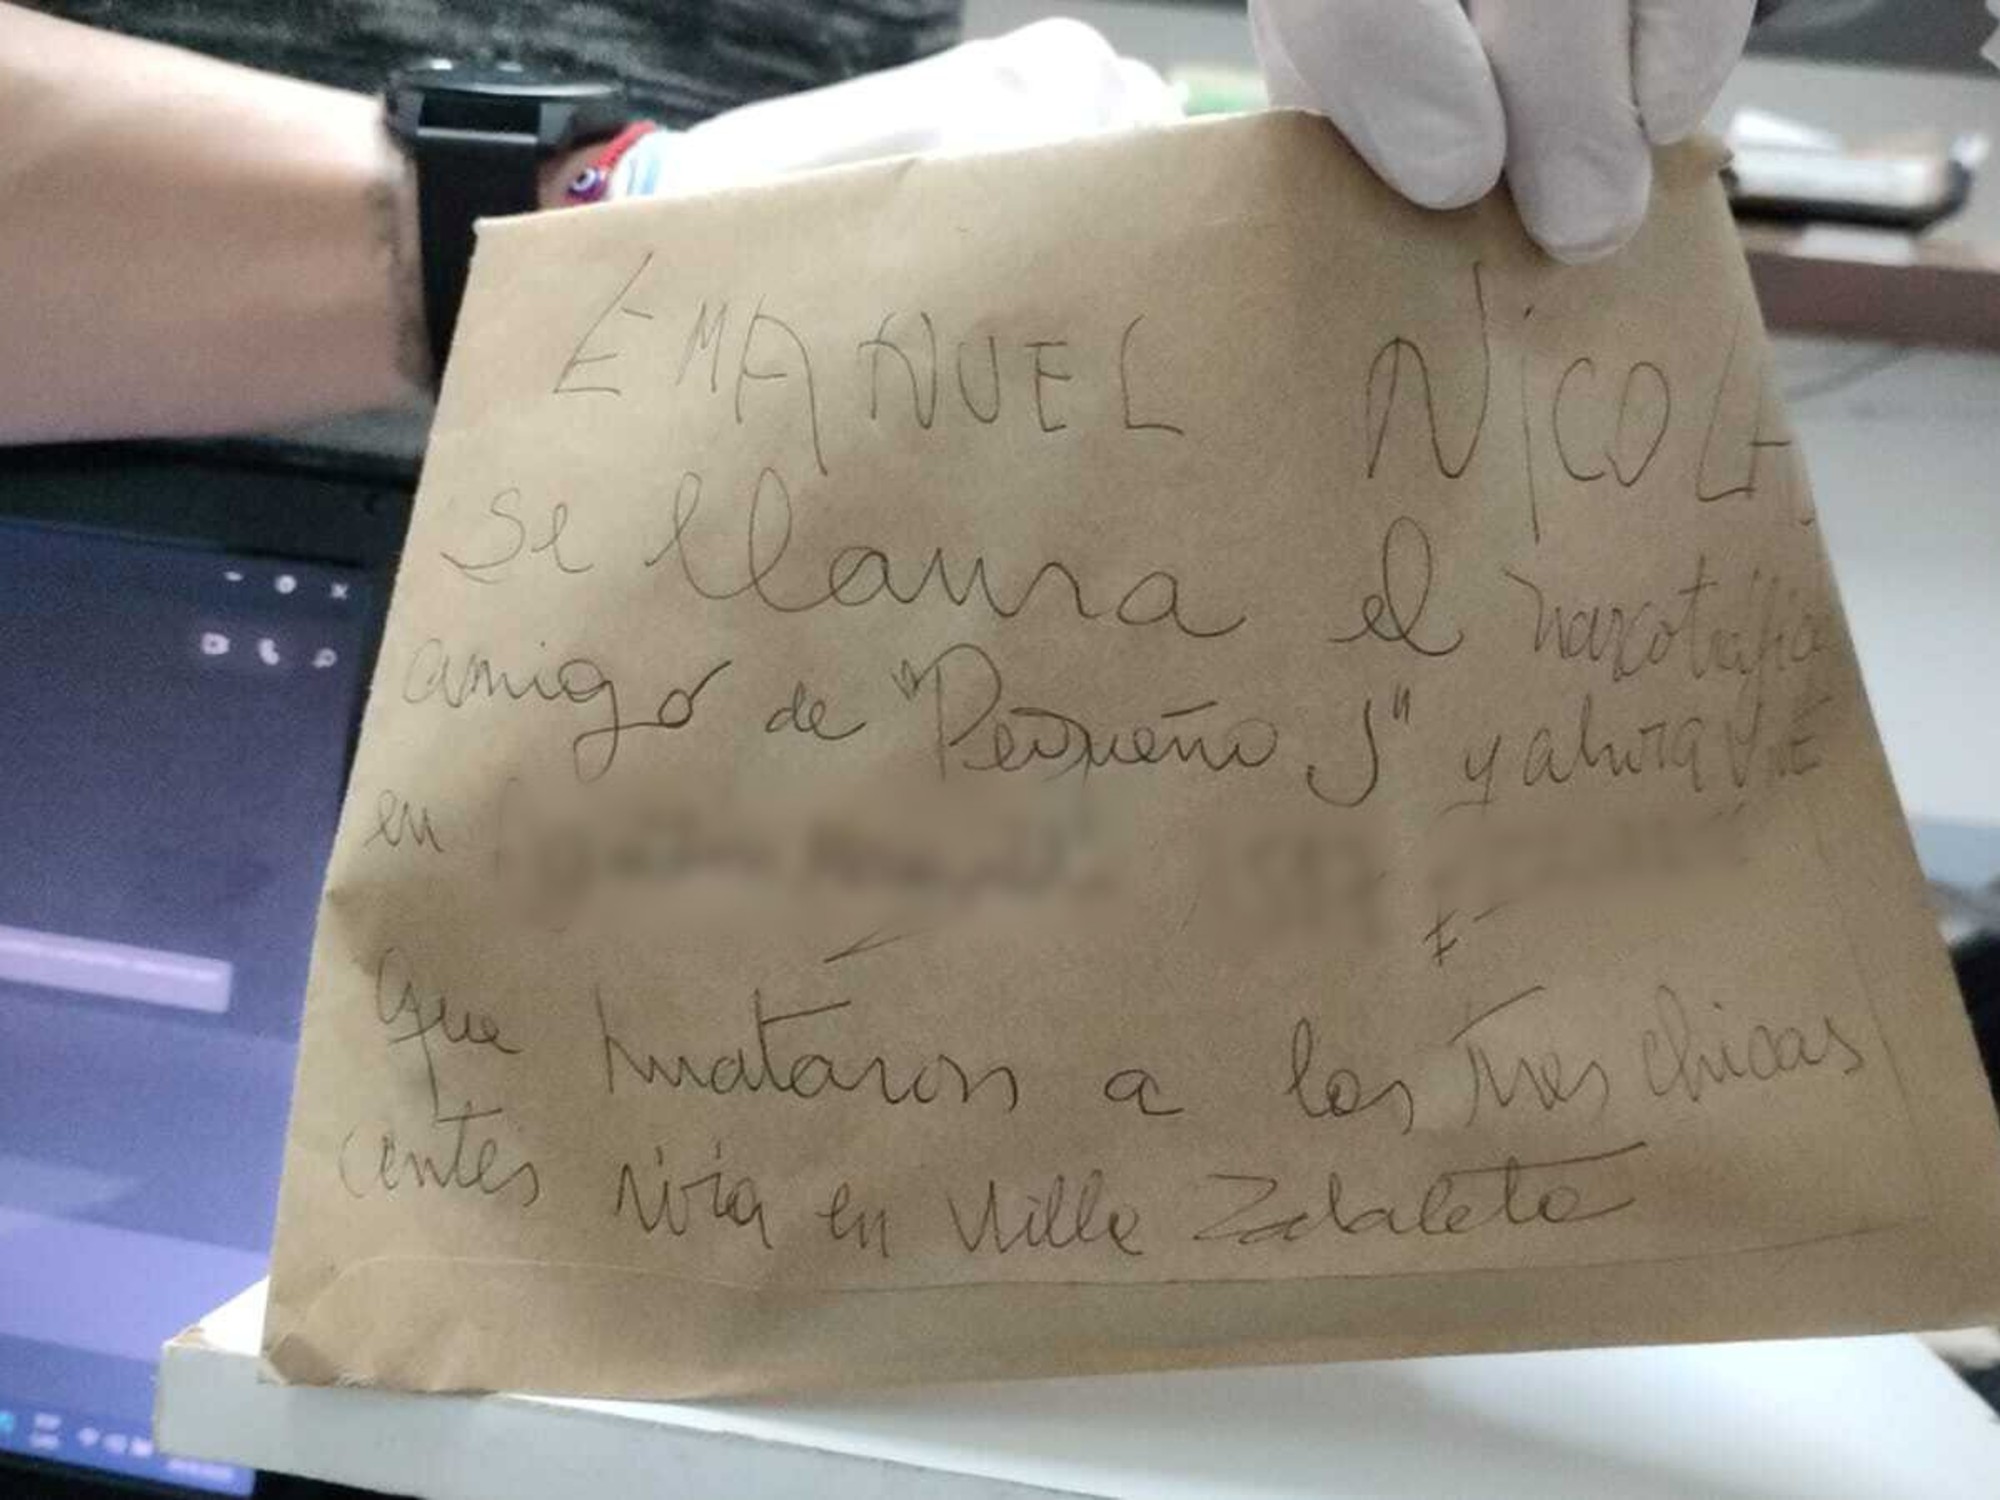 EMANUEL NICOLA
se llama el narcotrafica
amigo de "Pequeño J" y ahora VIVE
en
que mataron a las tres chicas
(antes vivia en Villa Zabaleta